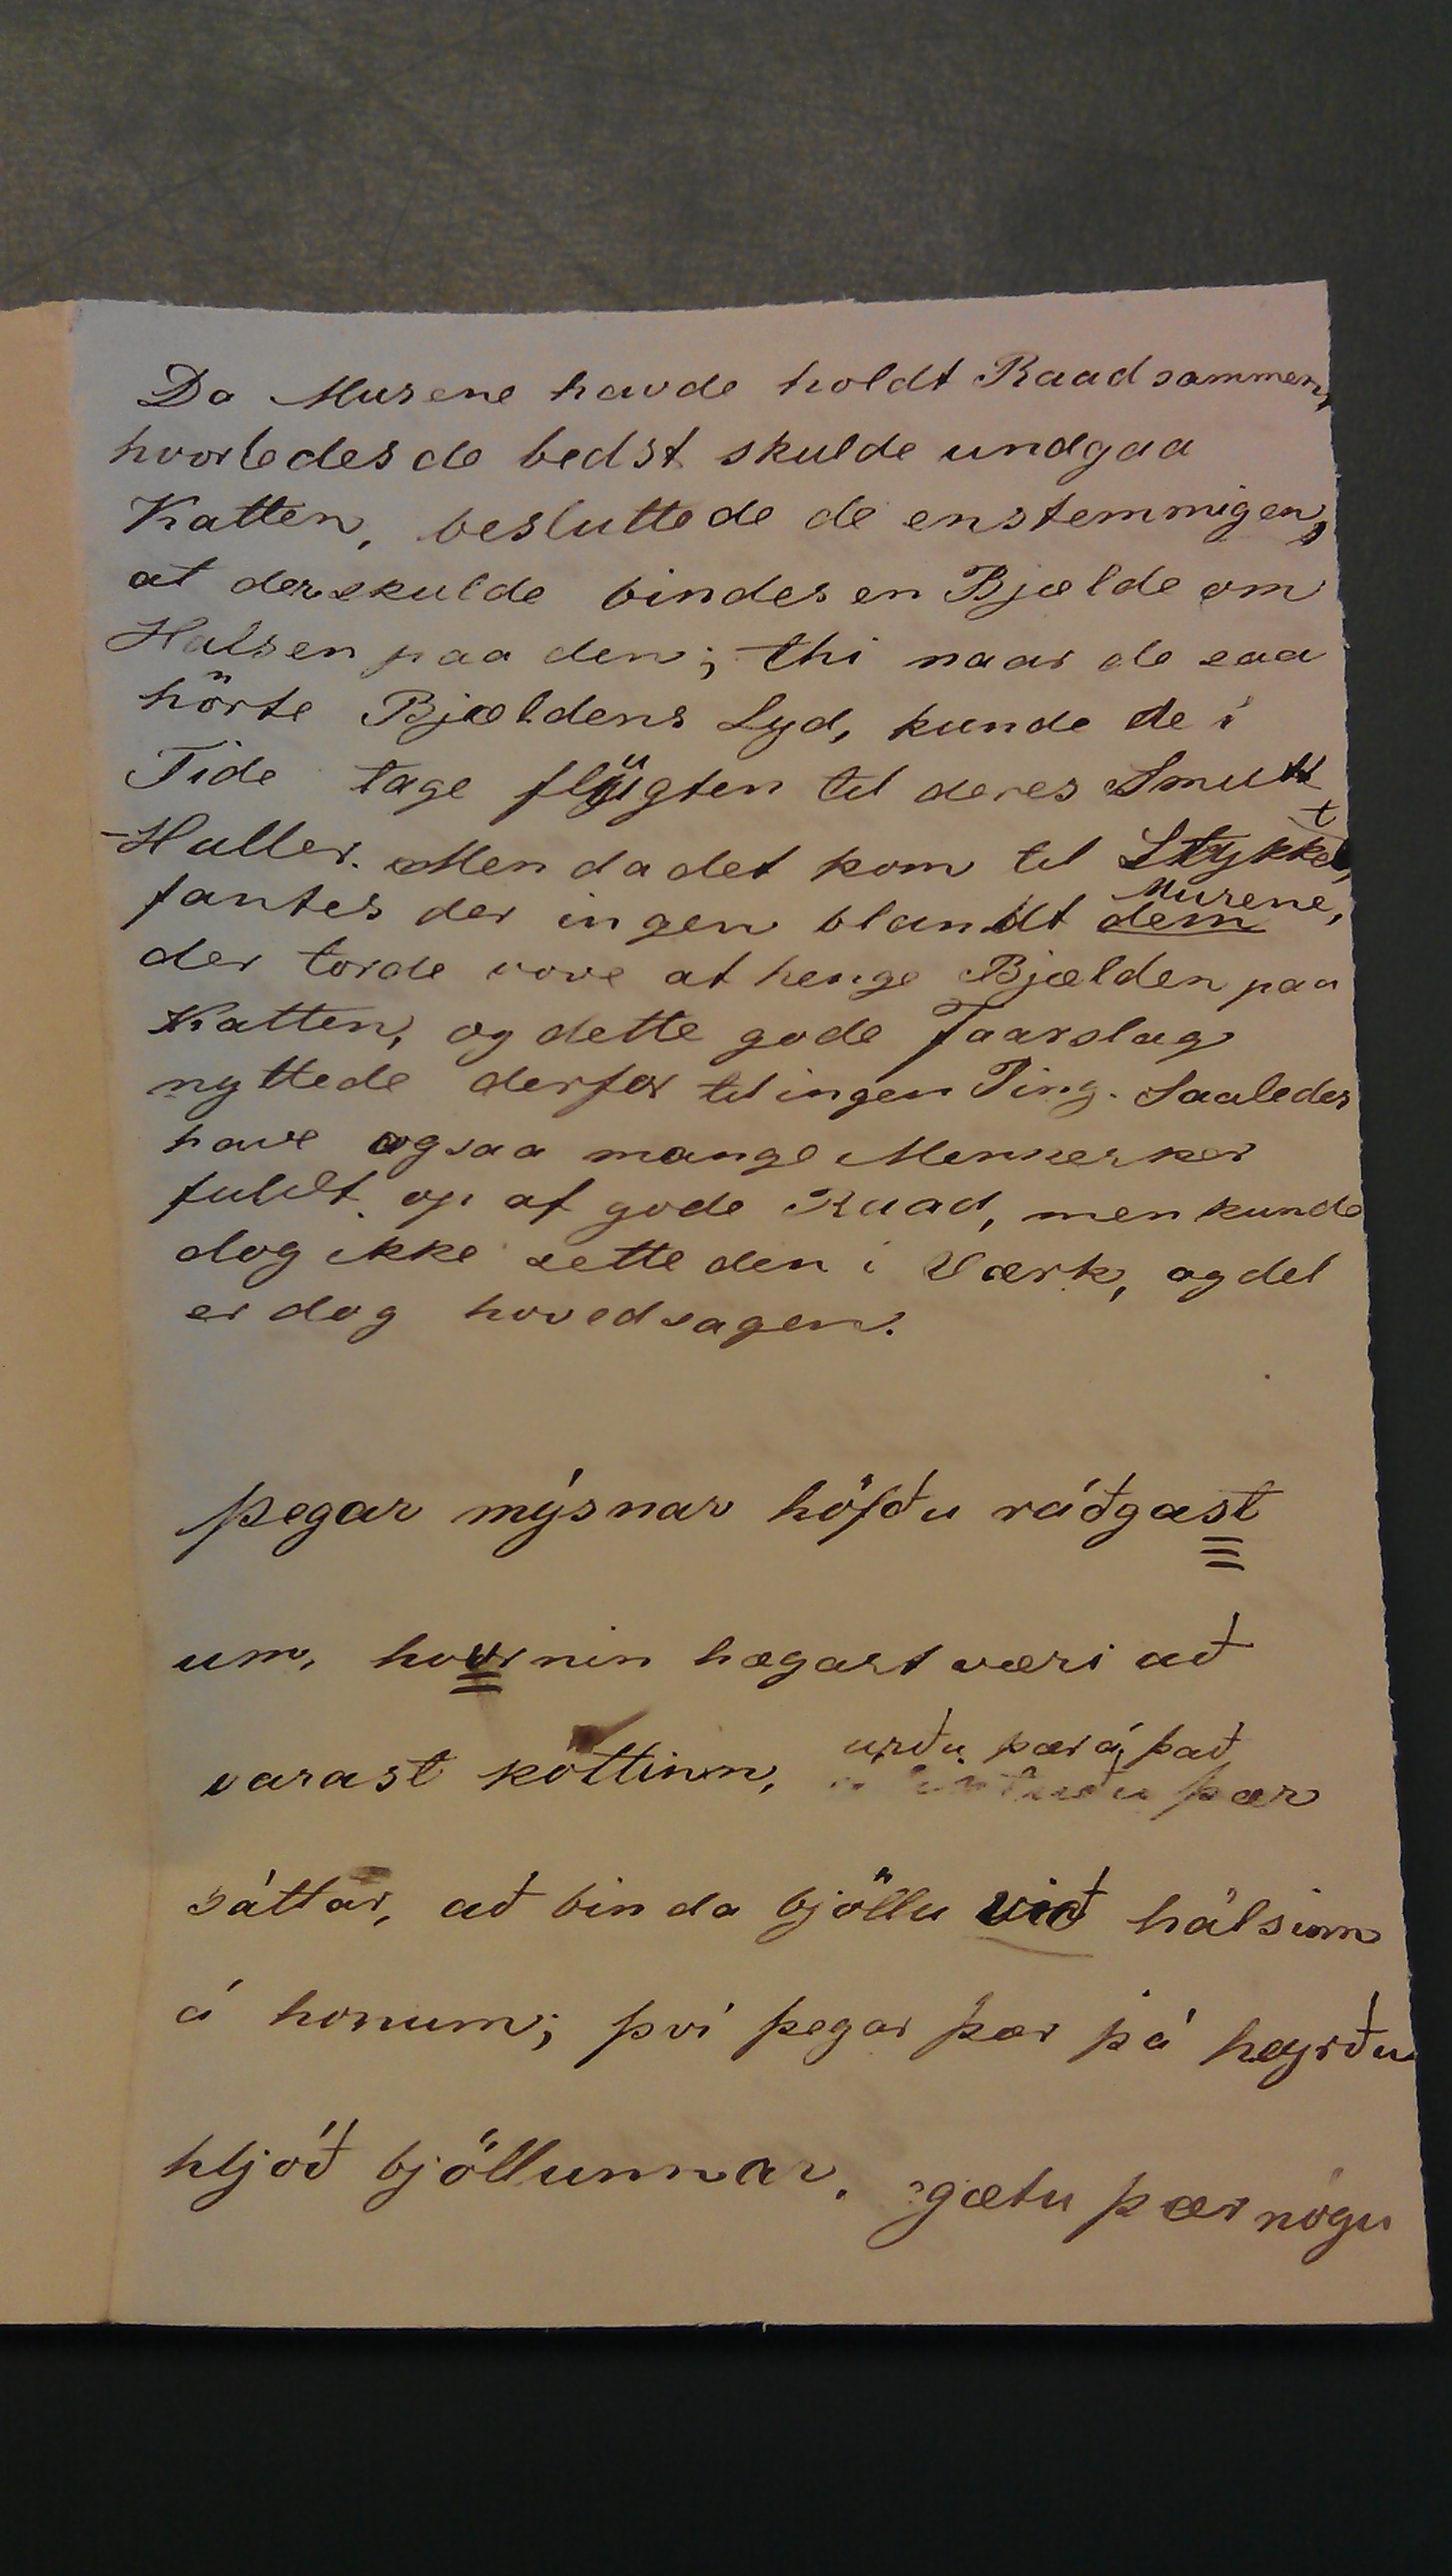 Da Musene havde holdt Raad sammen,
hvorledes de bedst skulde undgaa
Katten, besluttede de enstemmigen,
at der skulde bindes en Bjælde om
Halsen paa den; thi naar de saa
hörte Bjældens Lyd, kunde de i
Tide tage flÿgten til deres Smutt
-Huller. Men da det kom til Stykket,
Musene,
fantes der ingen blandt dem
der torde vove at henge Bjælden paa
Katten, og dette gode Faarslag
nyttede derfor til ingen Ting. Saaledes
have ogsaa mange Mennesker
fuldt op af gode Raad, men kunde
dog ikke sette den i Værk, og det
er dog hovedsagen.
þegar mýsnar höfðu ráðgast
um, hvornin hægast væri að
urðu þær á það
varast köttinn, þær
sáttar, að binda bjöllu við hálsinn
á honum; því þegar þær þá heyrðu
hljóð bjöllunnar, gætu þær nógu